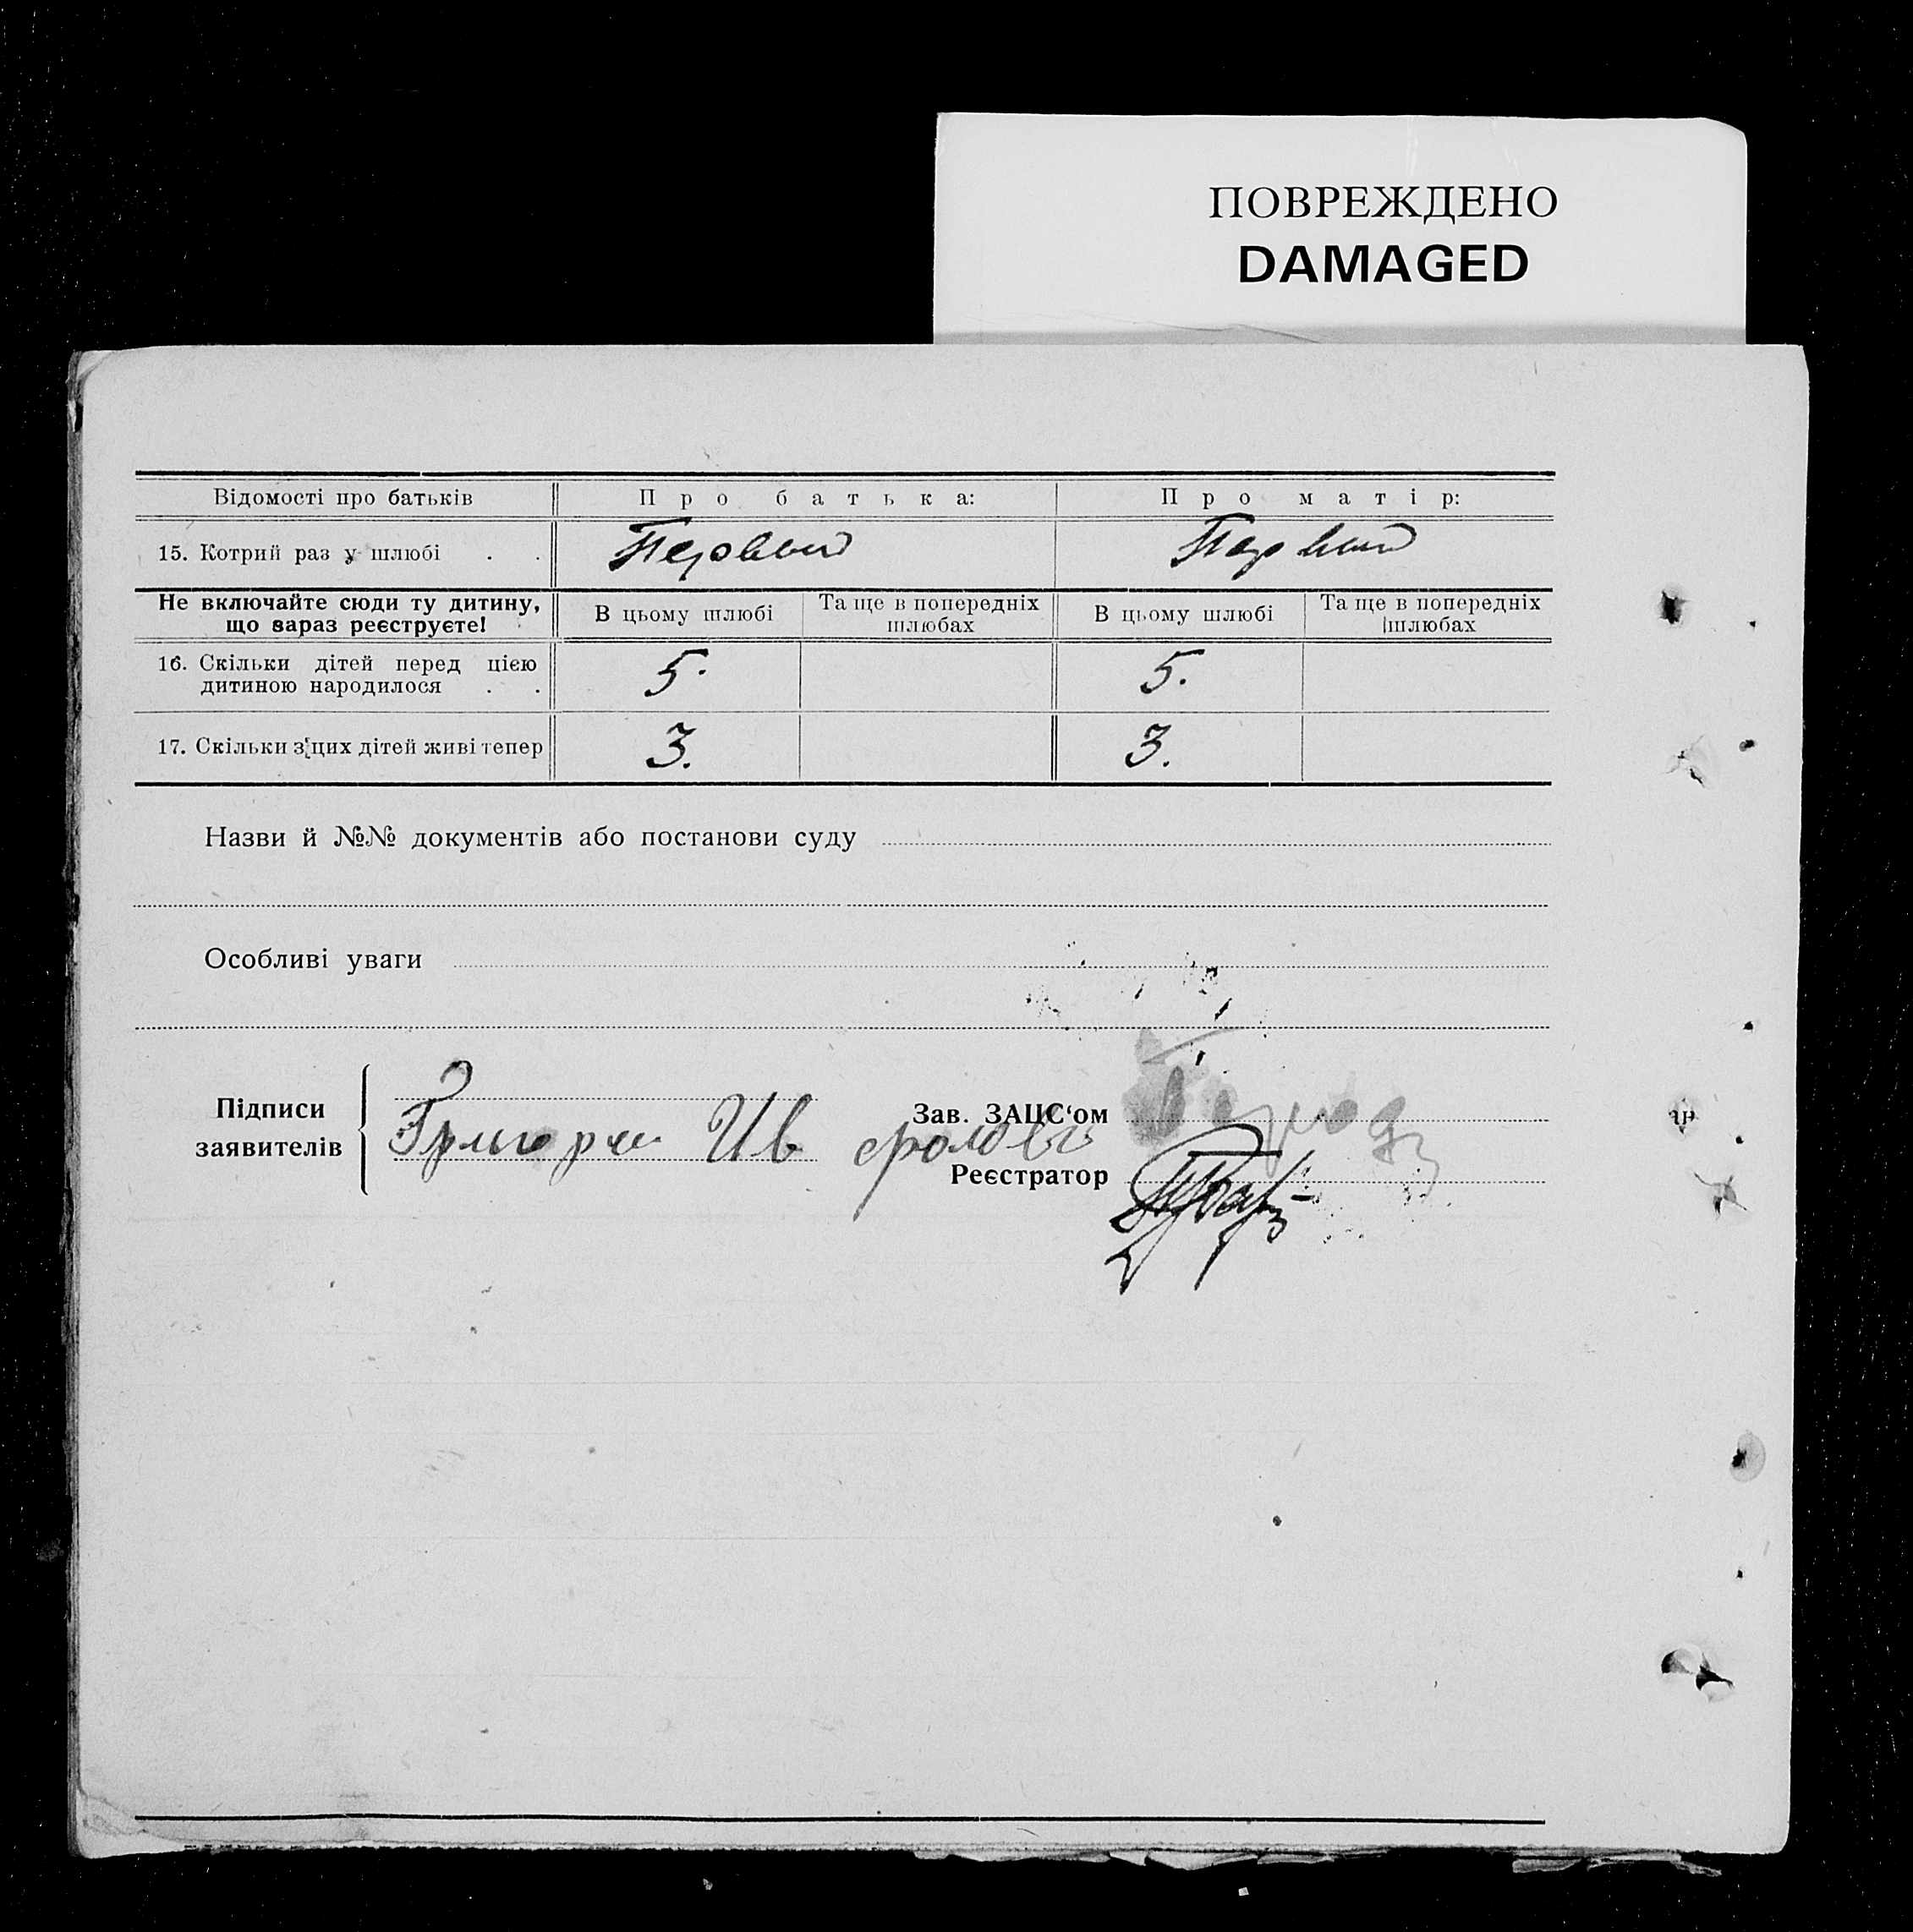 ПОВРЕЖДЕНО
DAMAGED
Відомості про батьків Про батька: Про матір:
15. Котрий раз у шлюбі . . Первый Первый
Не включайте сюди ту дитину, що зараз реєструєте! В цьому шлюбі Та ще в попередніх шлюбах В цьому шлюбі Та ще в попередніх шлюбах
16. Скільки дітей перед цією дитиною народилося . . 5. 5.
17. Скільки з цих дітей живі тепер 3. 3.
Назви й №№ документів або постанови суду
Особливі уваги
Підписи заявителів
Зав. ЗАЦС‘ом
Ив
Реєстратор